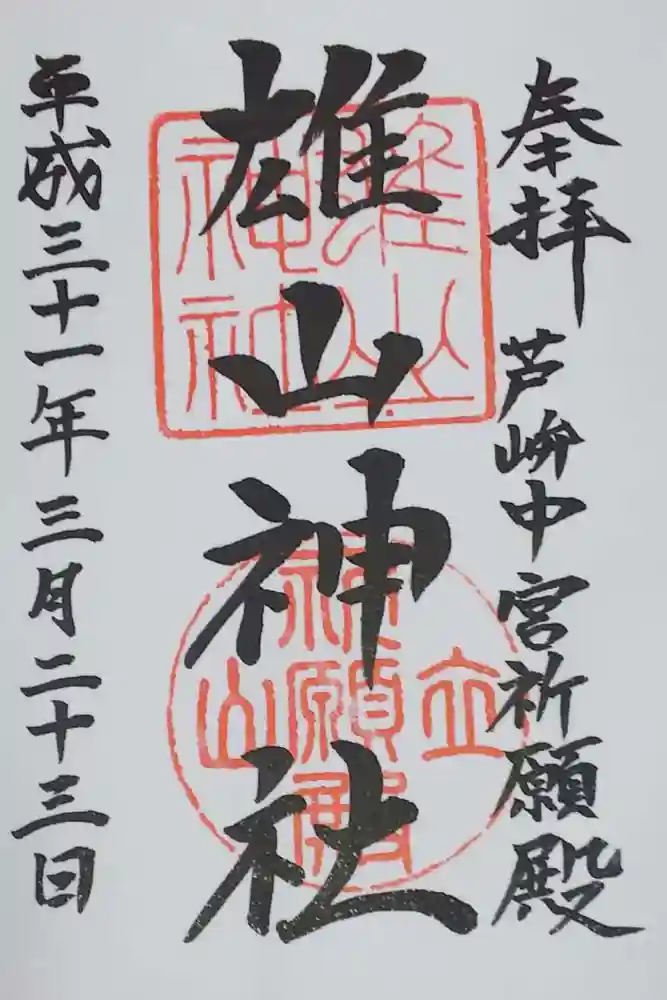 奉拝
芦峅中宮祈願殿
雄山神社
雄山
神社
立
祈願殿
山
平成三十一年三月二十三日